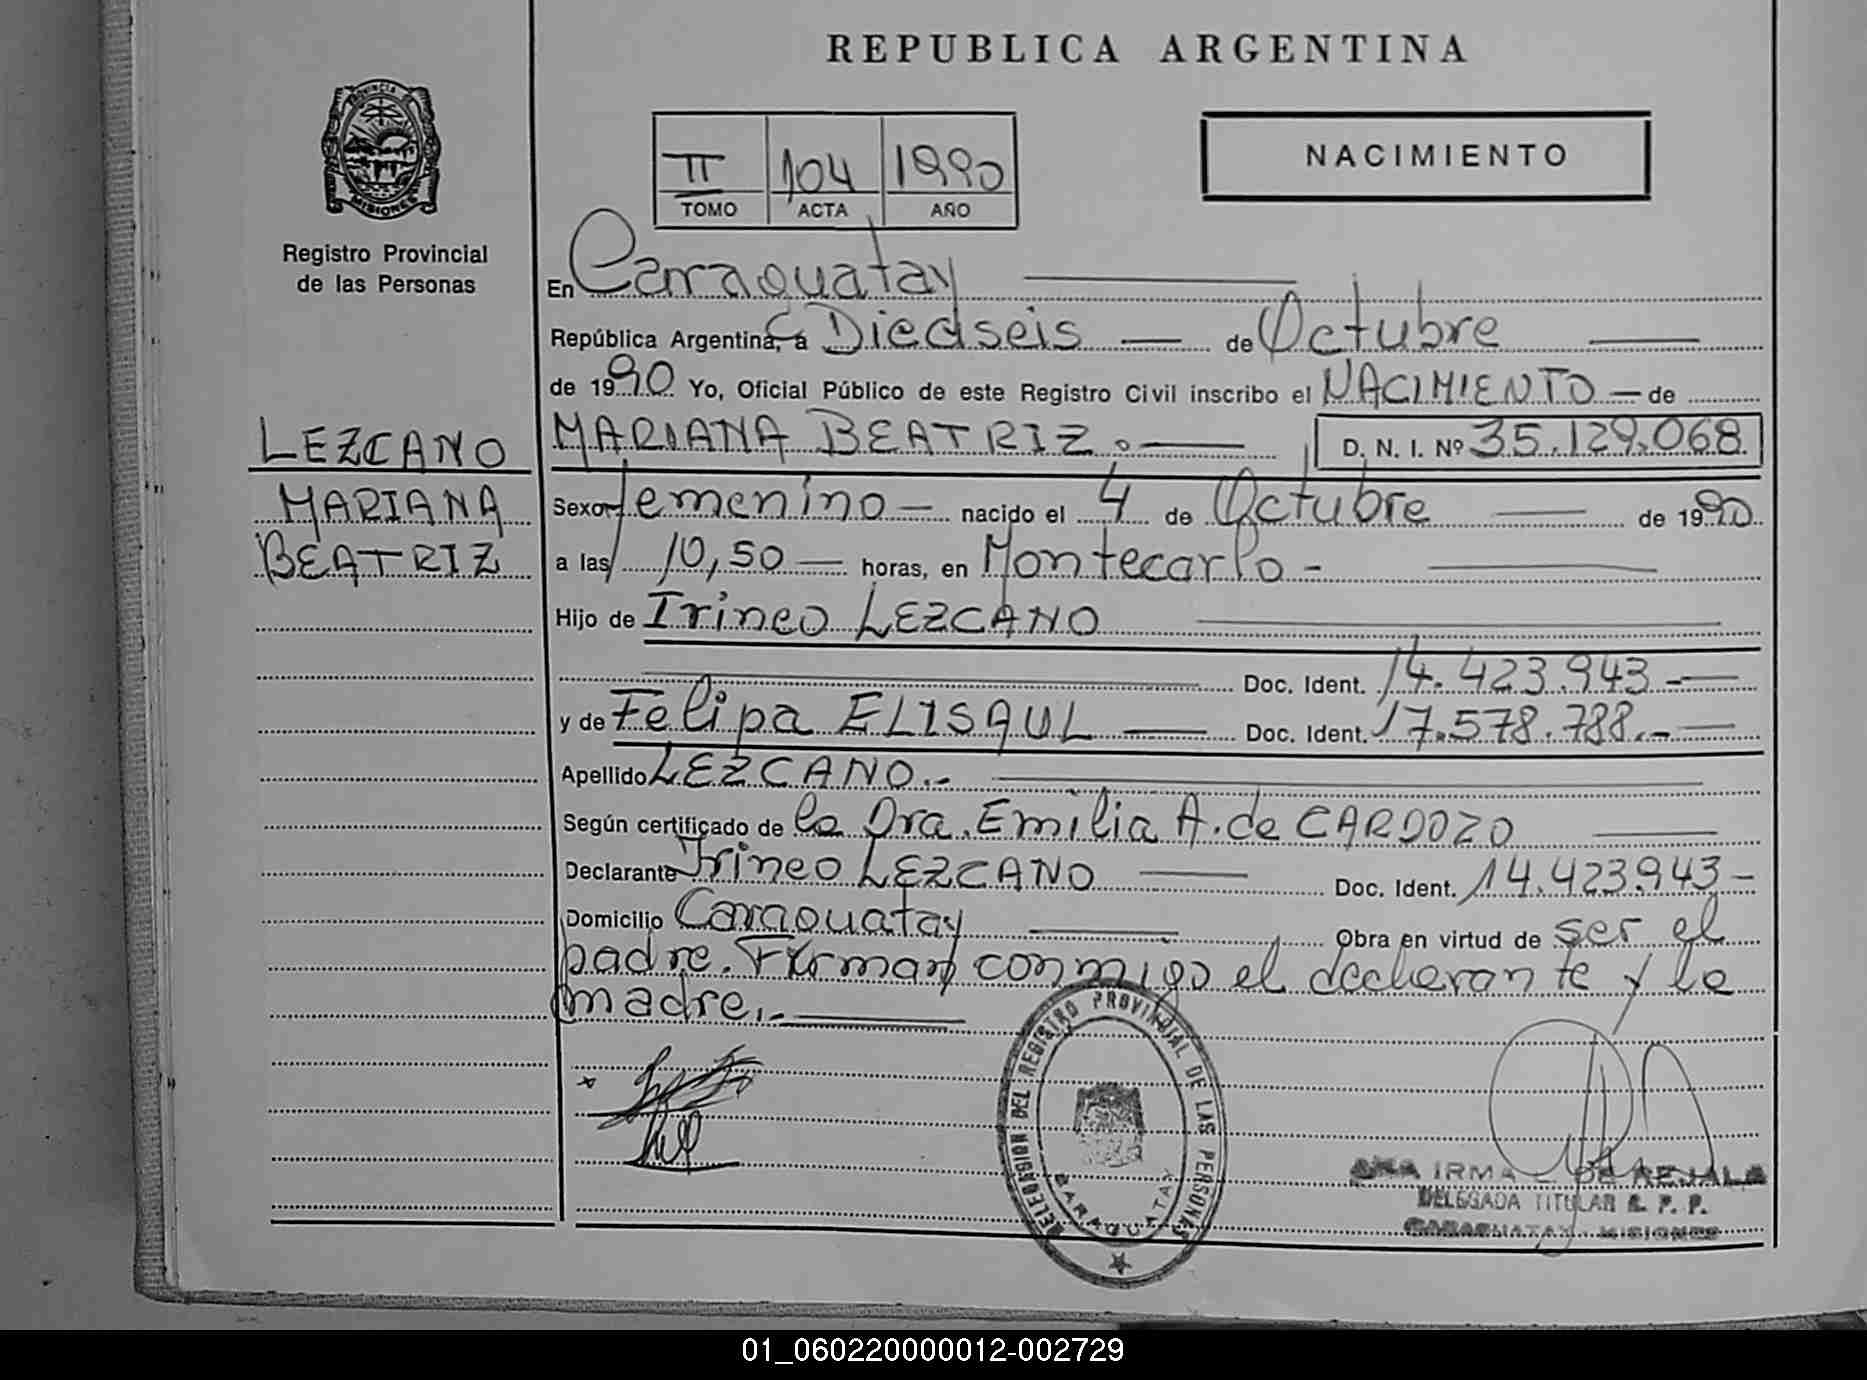 REPUBLICA ARGENTINA
PROVINCIA DE
MISIONES
Registro Provincial
de las Personas
II 104 1990
TOMO ACTA AÑO
NACIMIENTO
En Caraguatay
República Argentina, a Dieciseis de Octubre
de 1990 Yo, Oficial Público de este Registro Civil inscribo el NACIMIENTO de
LEZCANO
MARIANA
BEATRIZ
MARIANA BEATRIZ.- D. N. I. Nº 35.129.068
Sexo femenino nacido el 4 de Octubre de 1990
a las 10,50 horas, en Montecarlo -
Hijo de Irineo LEZCANO
Doc. Ident. 14.423.943.-
y de Felipa ELISAUL Doc. Ident. 17.578.788.-
Apellido LEZCANO.-
Según certificado de la Dra. Emilia A. de CARDOZO
Declarante Irineo LEZCANO Doc. Ident. 14.423.943-
Domicilio Caraguatay Obra en virtud de ser el
padre. Firman conmigo el declarante y la
madre.-
DELEGACION DEL REGISTRO PROVINCIAL DE LAS PERSONAS
CARAGUATAY
ANA IRMA DE REJALA
DELEGADA TITULAR R. P. P.
CARAGUATAY - MISIONES
01_060220000012-002729